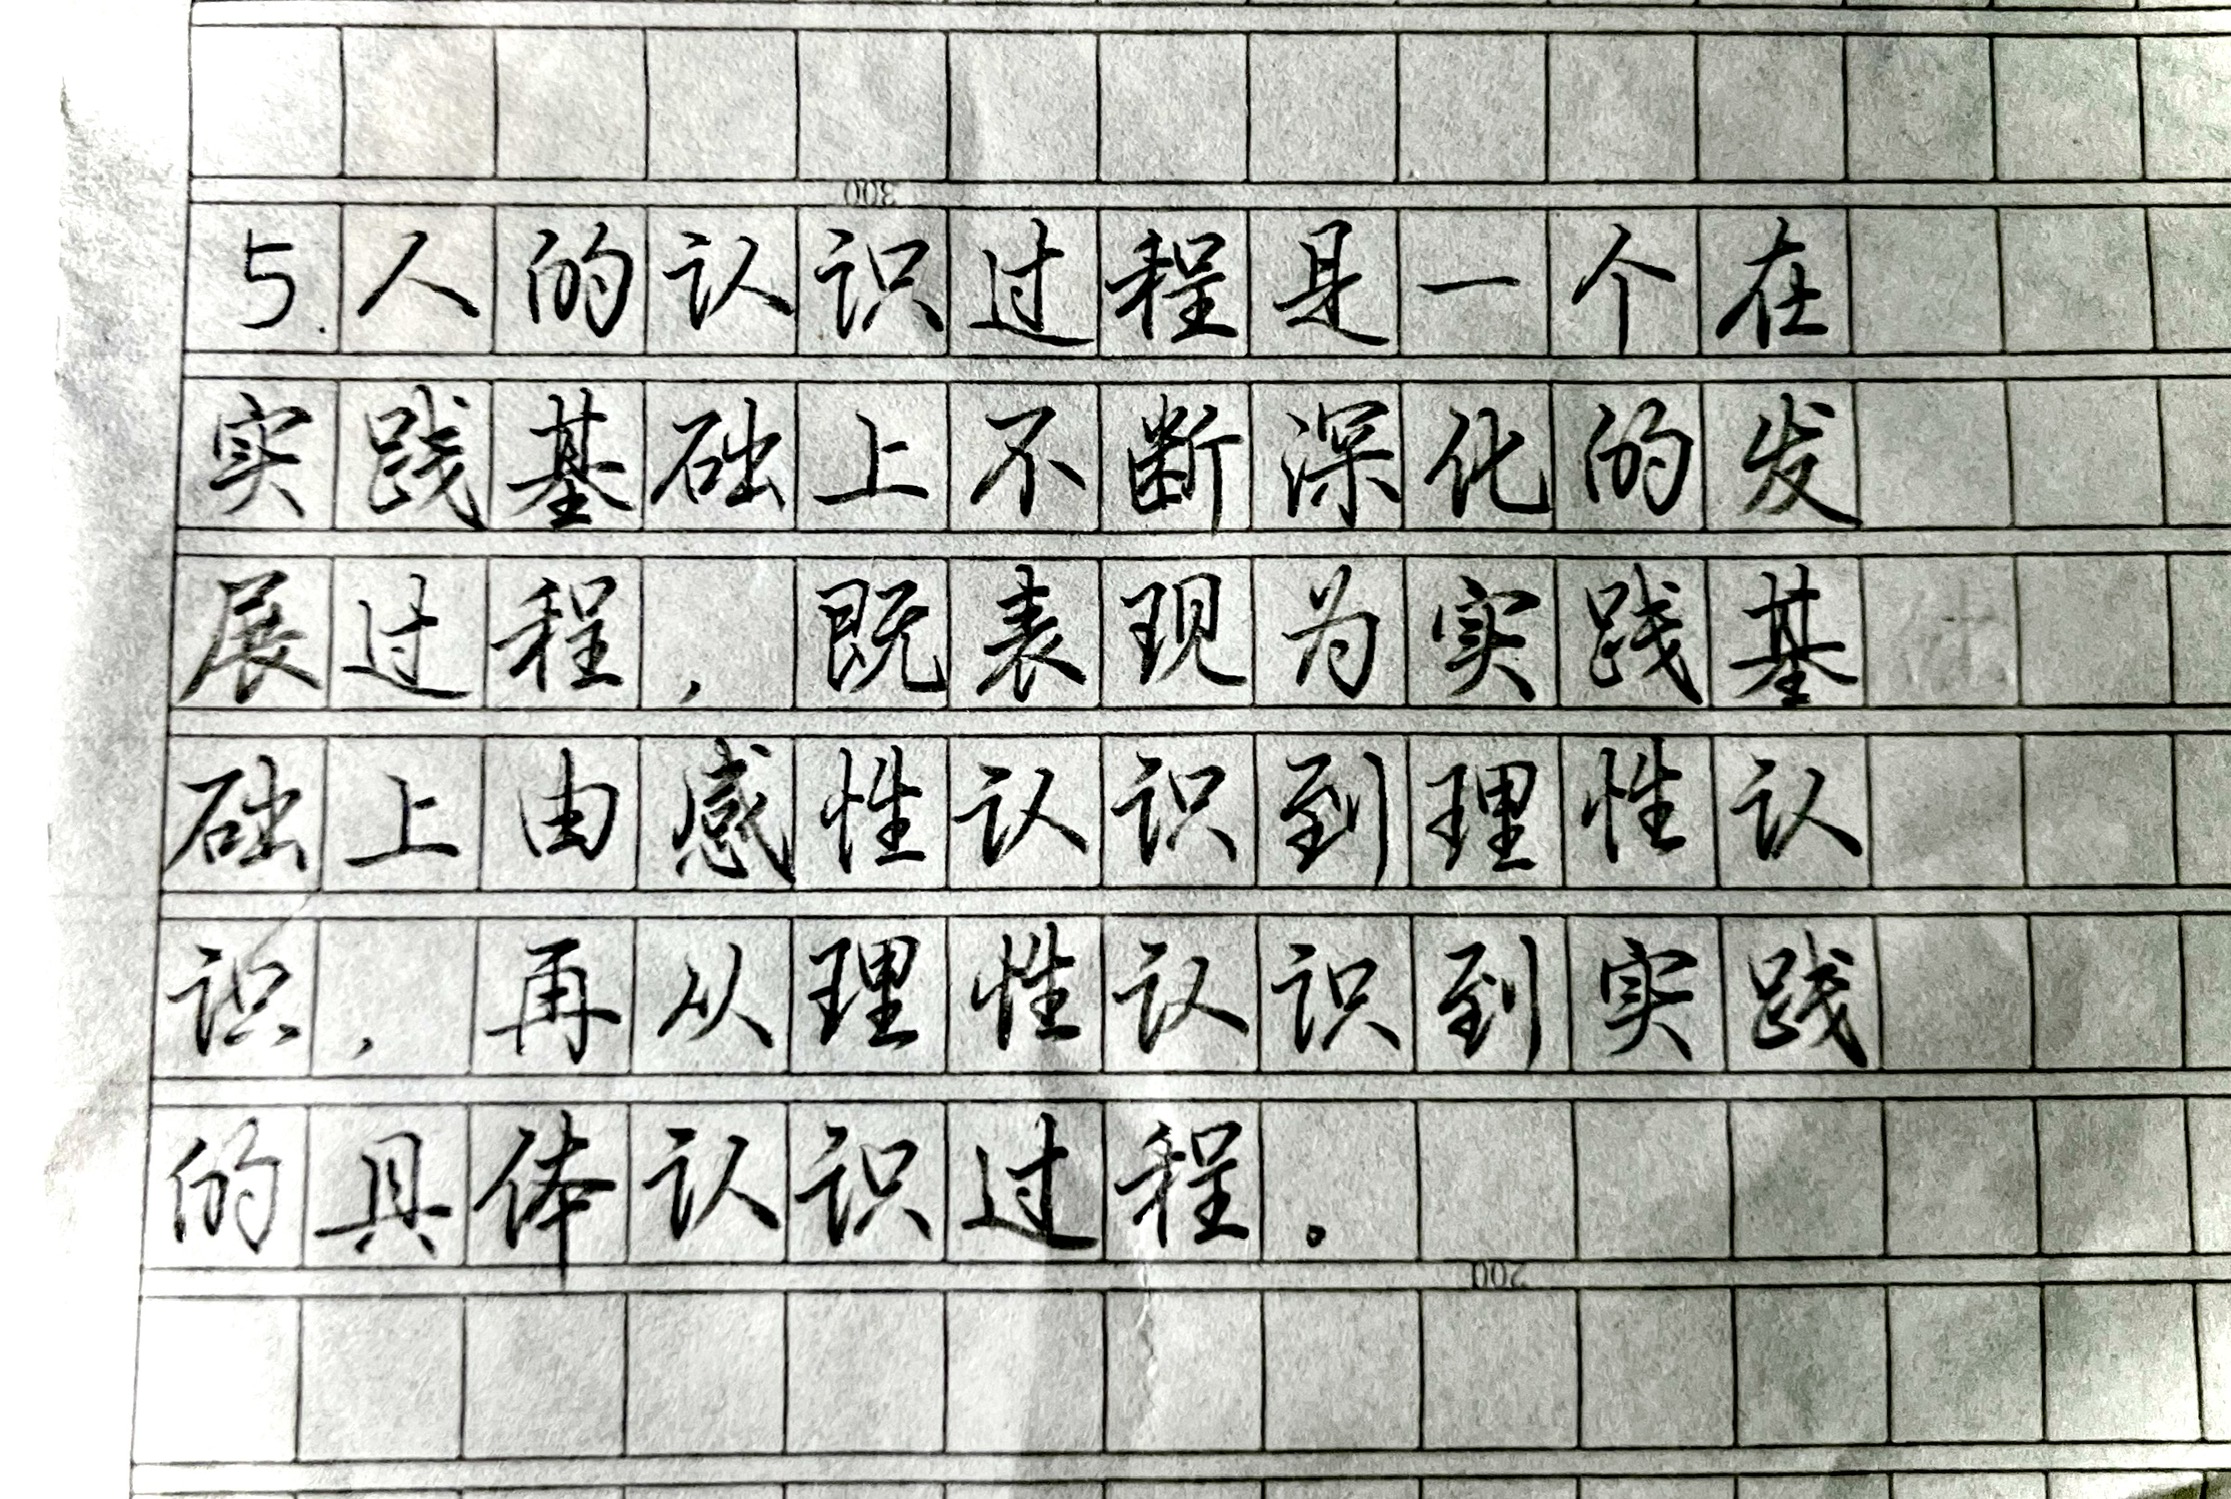 300
5.人的认识过程是一个在
实践基础上不断深化的发
展过程，既表现为实践基
础上由感性认识到理性认
识，再从理性认识到实践
的具体认识过程。
200